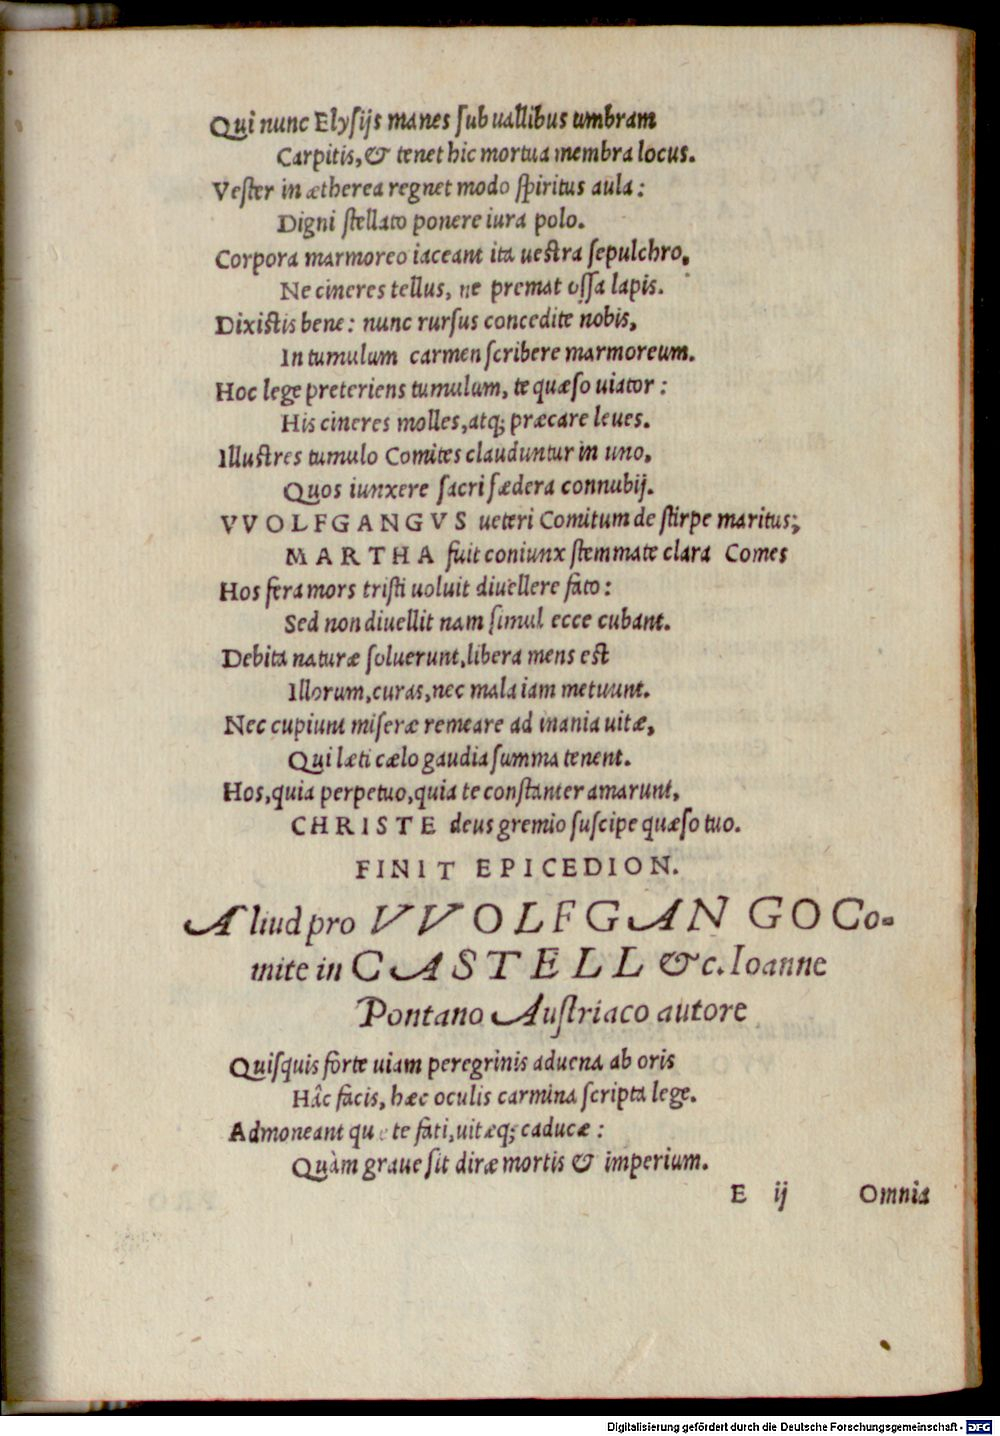 Qui nunc Elyſijs manes ſub uallibus umbram
Carpitis, & tenet hic mortua membra locus.
Veſter in ætherea regnet modo ſpiritus aula:
Digni ſtellato ponere iura polo.
Corpora marmoreo iaceant ita ueſtra ſepulchro,
Ne cineres tellus, ne premat oſſa lapis.
Dixiſtis bene: nunc rurſus concedite nobis,
In tumulum carmen ſcribere marmoreum.
Hoc lege preteriens tumulum, te quæſo uiator:
His cineres molles, atq; præcare leues.
Illuſtres tumulo Comites clauduntur in uno,
Quos iunxere ſacri fædera connubij.
VVOLFGANGVS ueteri Comitum de ſtirpe maritus;
MARTHA fuit coniunx ſtemmate clara Comes
Hos fera mors triſti uoluit diuellere fato:
Sed non diuellit nam ſimul ecce cubant.
Debita naturæ ſoluerunt, libera mens eſt
Illorum, curas, nec mala iam metuunt.
Nec cupiunt miſeræ remeare ad inania uitæ,
Qui læti cælo gaudia ſumma tenent.
Hos, quia perpetuo, quia te conſtanter amarunt,
CHRISTE deus gremio ſuſcipe quæſo tuo.
FINIT EPICEDION.
Aliud pro VVOLFGANGO Co-
mite in CASTELL &c. Ioanne
Pontano Auſtriaco autore
Quiſquis forte uiam peregrinis aduena ab oris
Hâc facis, hæc oculis carmina ſcripta lege.
Admoneant que te fati, uitæq; caducæ:
Quàm graue ſit diræ mortis & imperium.
E ij Omnia
Digitalisierung gefördert durch die Deutsche Forschungsgemeinschaft - DFG